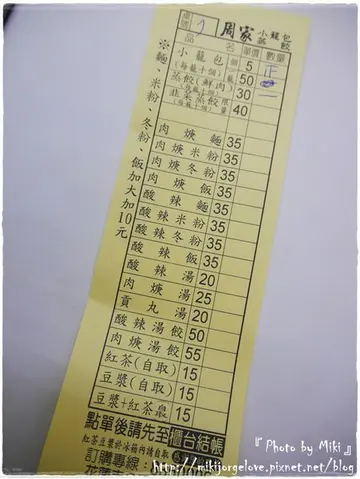 桌號
周家 小籠包 蒸餃
品名 單價 數量
小籠包 個 5 正
(每籠十個) 籠 50
蒸餃(鮮肉) 30
韭菜蒸餃 限量 40
肉焿麵 35
肉焿米粉 35
肉焿冬粉 35
肉焿飯 35
酸辣麵 35
酸辣米粉 35
酸辣冬粉 35
酸辣飯 35
酸辣湯 20
肉焿湯 25
貢丸湯 20
酸辣湯餃 50
肉焿湯餃 55
紅茶(自取) 15
豆漿(自取) 15
豆漿+紅茶 15
※麵、米粉、冬粉、飯加大加10元
點單後請先至櫃台結帳
紅茶豆漿於冰箱內請自取
訂購專線:
『 Photo by Miki 』
http://mikijorgelove.pixnet.net/blog